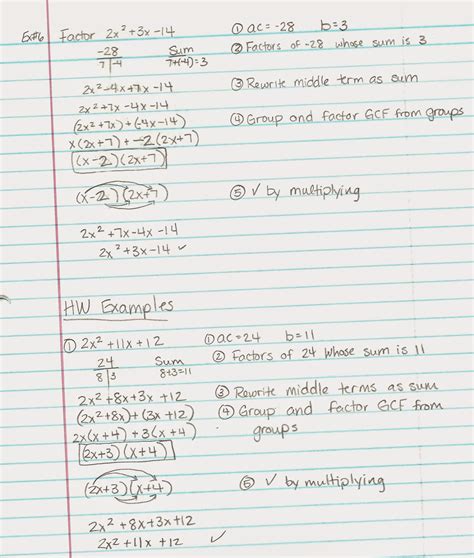 Ex#6 Factor 2x²+3x-14 ① ac=-28 b=3
-28 Sum ② Factors of -28 whose sum is 3
7 | -4 7+(-4)=3
2x²-4x+7x-14 ③ Rewrite middle term as sum
2x²+7x-4x-14
(2x²+7x)+(-4x-14) ④ Group and factor GCF from groups
x(2x+7)+-2(2x+7)
(x-2)(2x+7)
(x-2)(2x+7) ⑤ ✓ by multiplying
2x²+7x-4x-14
2x²+3x-14 ✓
HW Examples
① 2x²+11x+12 ① ac=24 b=11
24 Sum ② Factors of 24 whose sum is 11
8 | 3 8+3=11
2x²+8x+3x+12 ③ Rewrite middle terms as sum
(2x²+8x)+(3x+12) ④ Group and factor GCF from
2x(x+4)+3(x+4) groups
(2x+3)(x+4)
(2x+3)(x+4) ⑤ ✓ by multiplying
2x²+8x+3x+12
2x²+11x+12 ✓